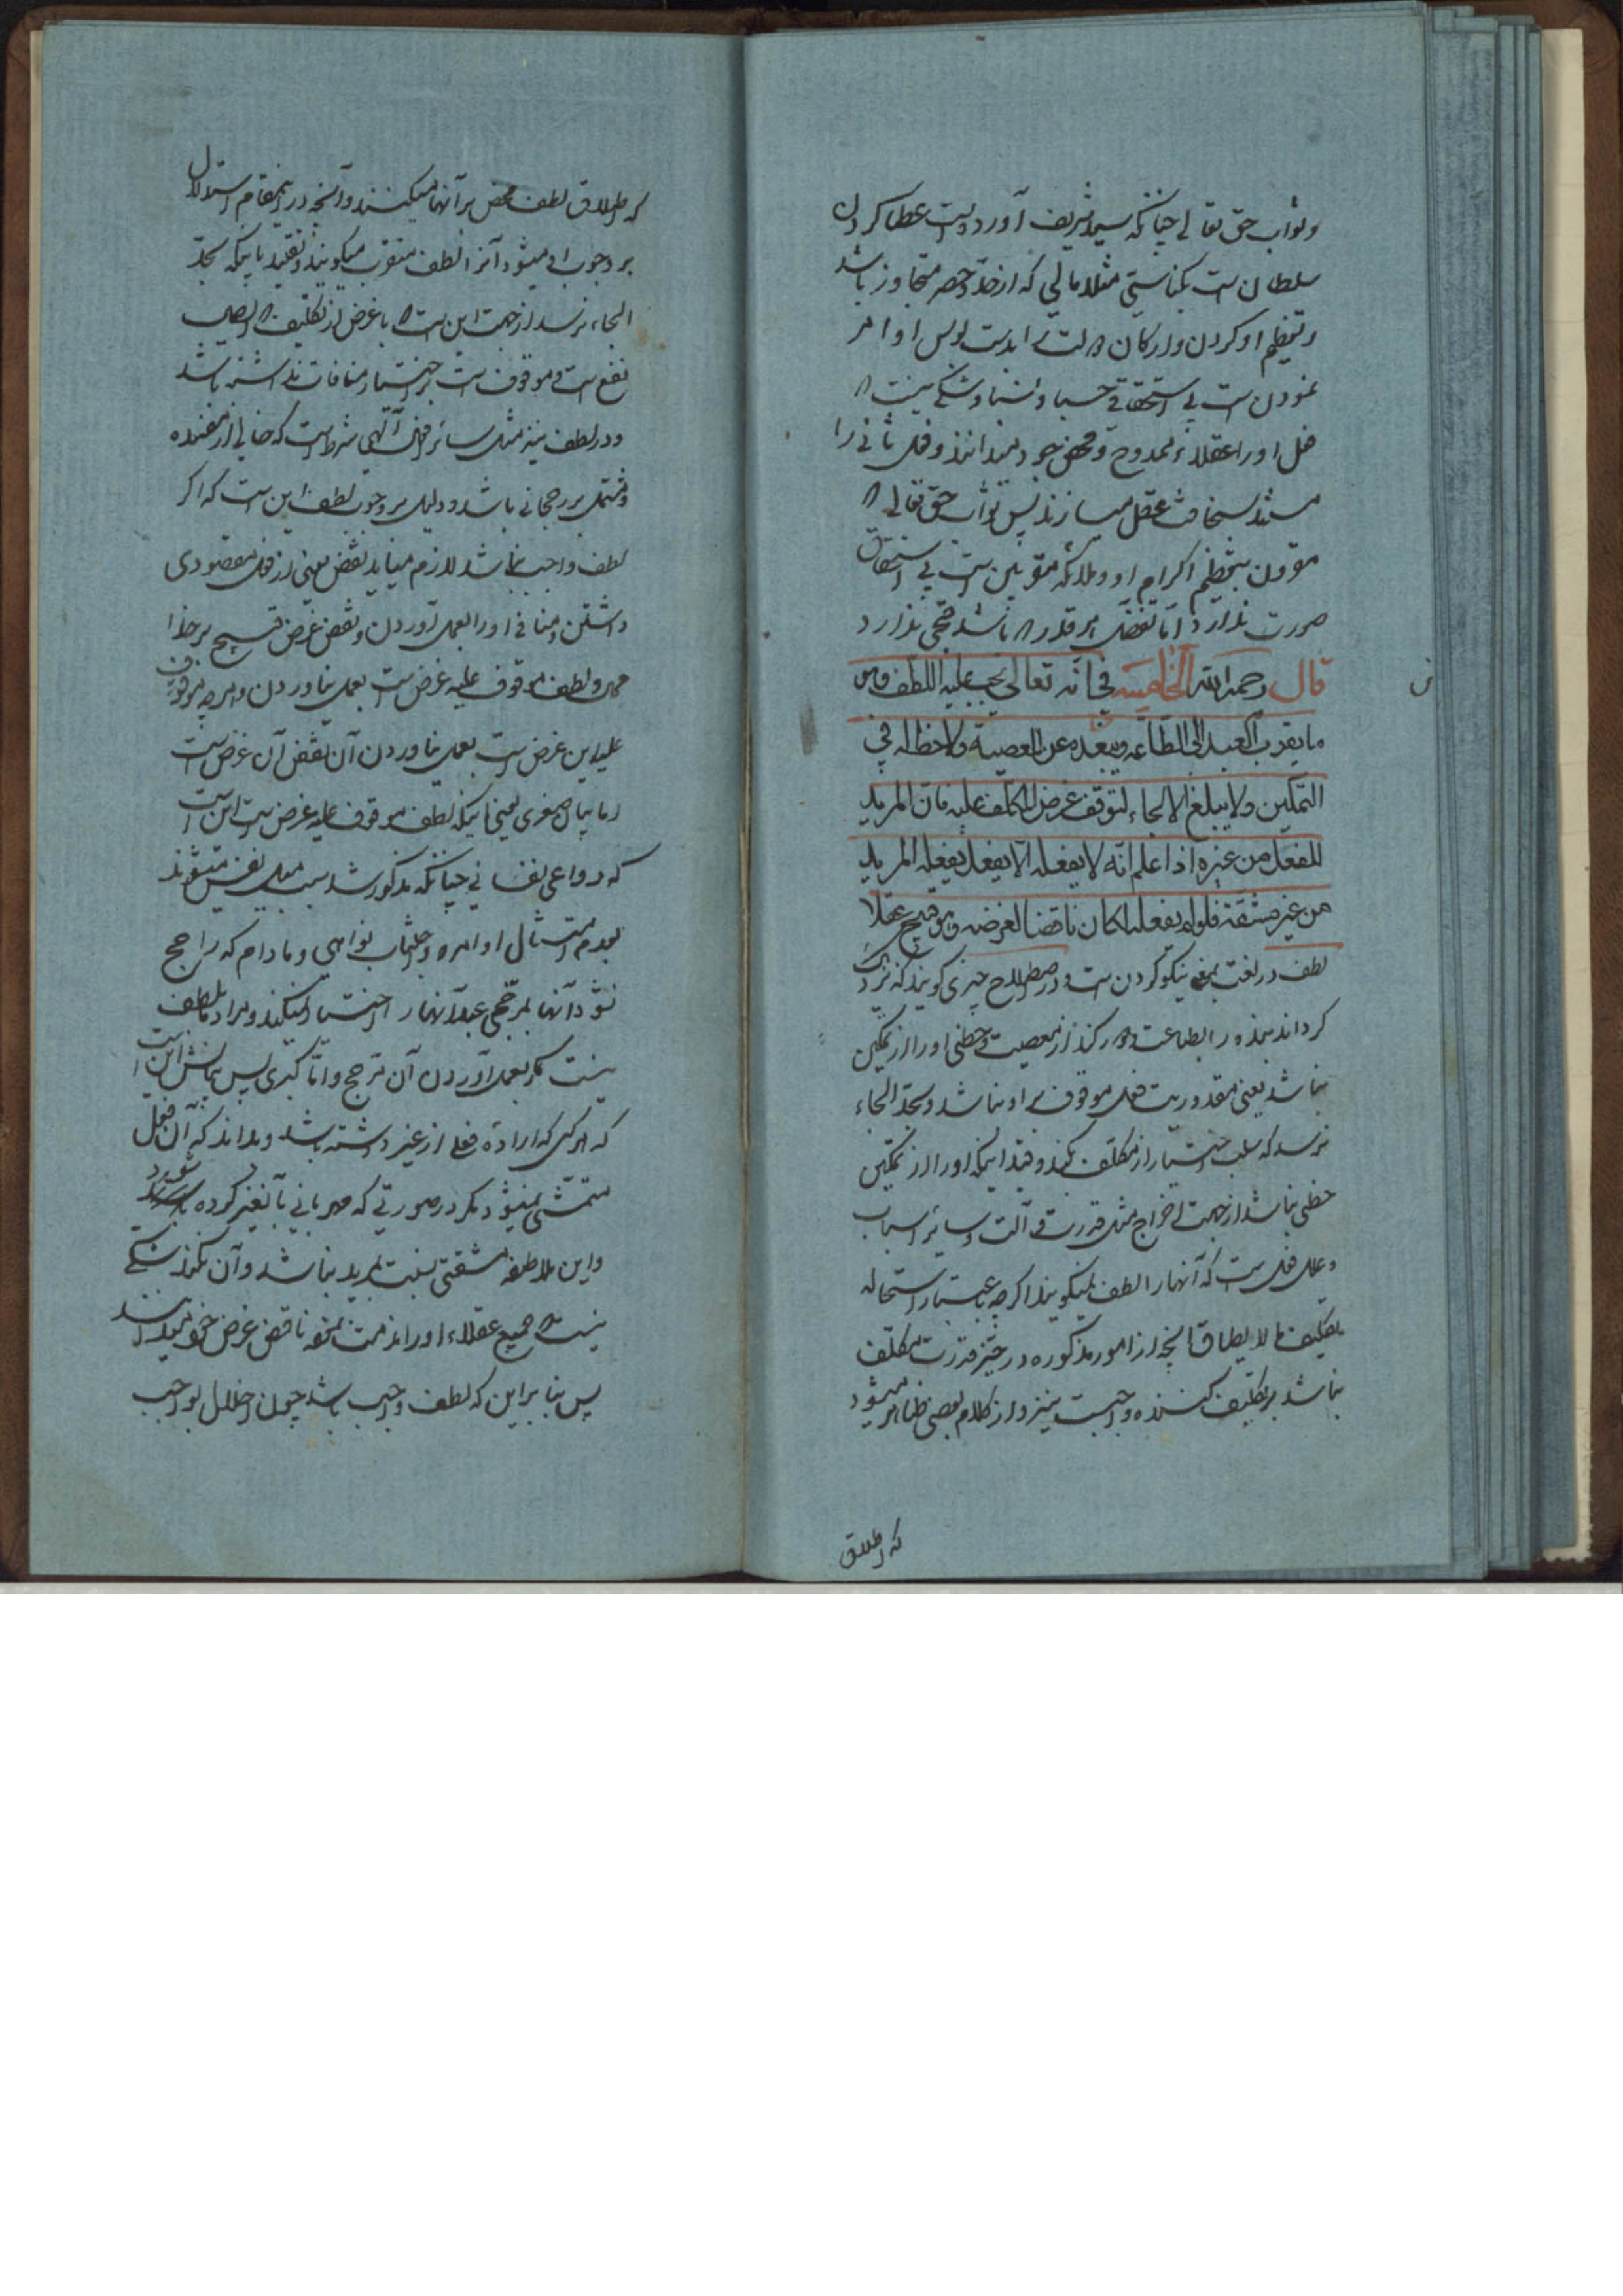 وثواب حق تعالی چنانکه سید شریف آورده است عطا کردن
سلطان است بکناسی مثلا مالی که از حد و حصر متجاوز باشد
وتعظیم او کردن وارکان
نمودن است بی استحقاقی
فعل او را عقلاء ممدوح و محض جود نمیدانند و فعل ثانی را
مستند بسخافت عقل میسازند پس ثواب حق تعالی که
مقرون بتعظیم اکرام او و ملائکه مقربین است بی استحقاق
صورت ندارد اما تفضل هر قدر که باشد قبحی ندارد
قال رحمه الله الخامسة فی انه تعالی یجب علیه اللطف وهو
ما یقرب العبد الی الطاعه ویبعده عن المعصیة ولا حظ له فی
التمکین ولا یبلغ الالجاء لتوقف غرض المکلف علیه فان المرید
للفعل من غیره اذا علم انه لا یفعله الا بفعل یفعله المرید
من غیر مشقة فلو لم یفعله لکان ناقضا لغرضه وهو قبیح عقلا
لطف در لغت بمعنی نیکو کردن است و در اصطلاح چیزی کویند که نزدیک
کرداند بنده را بطاعت و دور کند از معصیت و حظی او را از تمکین
نباشد یعنی مقدوریت فعل موقوف بر او نباشد و بحد الجاء
نرسد که سلب اختیار از مکلف بکند و قید اینکه او را از تمکین
حظی نباشد از جهت اخراج مثل قدرت و آلت و سائر اسباب
و علل فعل است که آنها را لطف نمیکویند اکرچه باعتبار استحاله
تکلیف ما لا یطاق آنچه از امور مذکوره در حیز قدرت مکلف
نباشد بر تکلیف کننده واجبست نیز و از کلام بعضی ظاهر میشود
که اطلاق
که اطلاق لطف محض بر آنها میکنند و آنچه در اینمقام استدلال
بر وجوب او میشود آنرا لطف مقرب میکویند و تقیید باینکه بحد
الجاء نرسد از جهت این است که با غرض از تکلیف که ایصال
نفع است و موقوف است بر اختیار منافات نداشته باشد
و در لطف نیز مثل سائر افعال آلهی شرط است که خالی از مفسده
و مشتمل بر رجحانی باشد و دلیل بر وجوب لطف این است که اکر
لطف واجب نباشد لازم میاید نقض یعنی از فعل مقصودی
داشتن و منافی او را بعمل آوردن و نقض غرض قبیح بر خدا
محال و لطف موقوف علیه غرض است بعمل نیاوردن و هرچه موقوف
علیه این غرض است بعمل نیاوردن آن نقض آن غرض است
اما بیان صغری یعنی اینکه لطف موقوف علیه غرض است این است
که دواعی نفسانی چنانکه مذکور شد سبب میل نفس میشوند
بعدم امتثال اوامر و اجتناب نواهی و مادام که راجح
نشود آنها بمرجحی عبد آنها را اختیار نمیکند و مراد بلطف
نیست مکر بعمل آوردن آن مرجح و اما کبری پس بیانش این است
که هر کس که اراده فعلی از غیر داشته باشد و بداند که آن فعل
متمشی نمیشود مکر در صورتی که مهربانی بآنغیر کرده شود
و این ملاطفه مشقتی نسبت بمرید نباشد و آن نکند شکی
نیست که جمیع عقلاء او را مذمت نموده ناقض غرض خود میدانند
پس بنا بر این که لطف واجب باشد چون اخلال بواجب